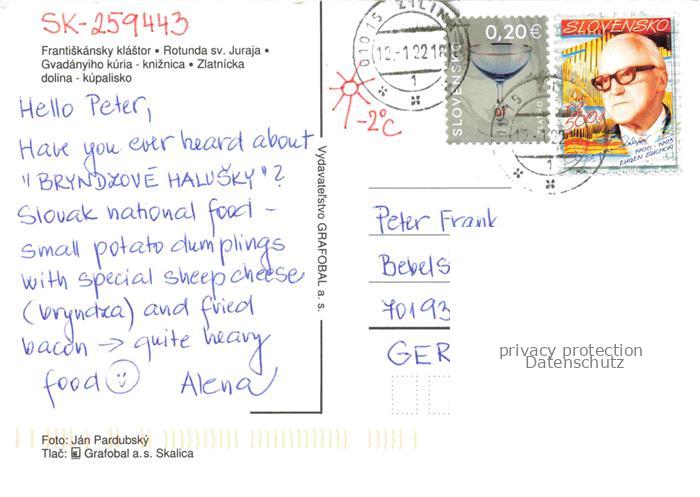 SK-259443
Františkánsky kláštor • Rotunda sv. Juraja •
Gvadányiho kúria - knižnica • Zlatnícka
dolina - kúpalisko
Hello Peter,
Have you ever heard about
"BRYNDZOVÉ HALUŠKY"?
Slovak national food -
small potato dumplings
with special sheep cheese
(bryndza) and fried
bacon → quite heavy
food ☺ Alena
Foto: Ján Pardubský
Tlač: Grafobal a. s. Skalica
Vydavateľstvo GRAFOBAL a. s.
-2°C
01015 ŽILINA
12.-1.22-18
1
0,20€
SLOVENSKO
SLOVENSKO
1906 - 1993
EUGEN SUCHOŇ
Peter Frank
Bebels
70193
GER
privacy protection
Datenschutz